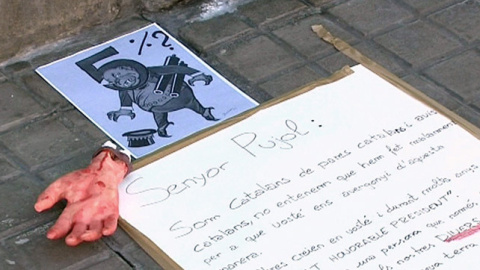 5%?
Senyor Pujol:
Som Catalans de pares catalans i avis
catalans, no entenem que hem fet malament
per a que vosté ens avergonyi d'aquesta
manera.
creien en vosté i durant molts anys
HONORABLE PRESIDENT"
una persona que només
els nostres DINERS
terra